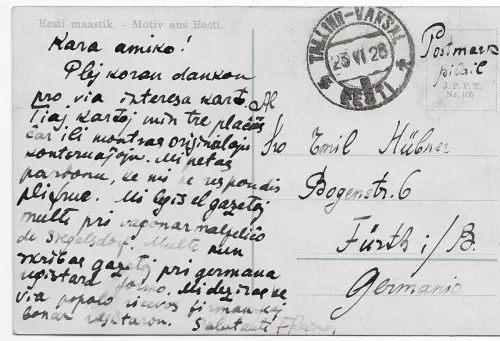 Eesti maastik. - Motiv aus Eesti.
Kara amiko!
Plej koran dankon
pro via interesa kart.
Tiaj kartoj min tre plaĉas
ĉar ili montras originalajn
konternaĵojn. Mi petas
pardonu, ke mi ne respondis
pli frue. Mi legis el gazetoj
multe pri vagonarmalfeliĉo
de Siegelsdorf. Multe nun
skribas gazetoj pri germana
Mi deziras ke
via popolo ricevos firman kaj
bonan
Salutanta
TALLINN-VAKSAL
23 VI 26
EESTI
Postmark
pilail
J.P.P.T.
Al
Sro Emil Hübner
Bogenstr. 6
Fürth i/B.
Germanio